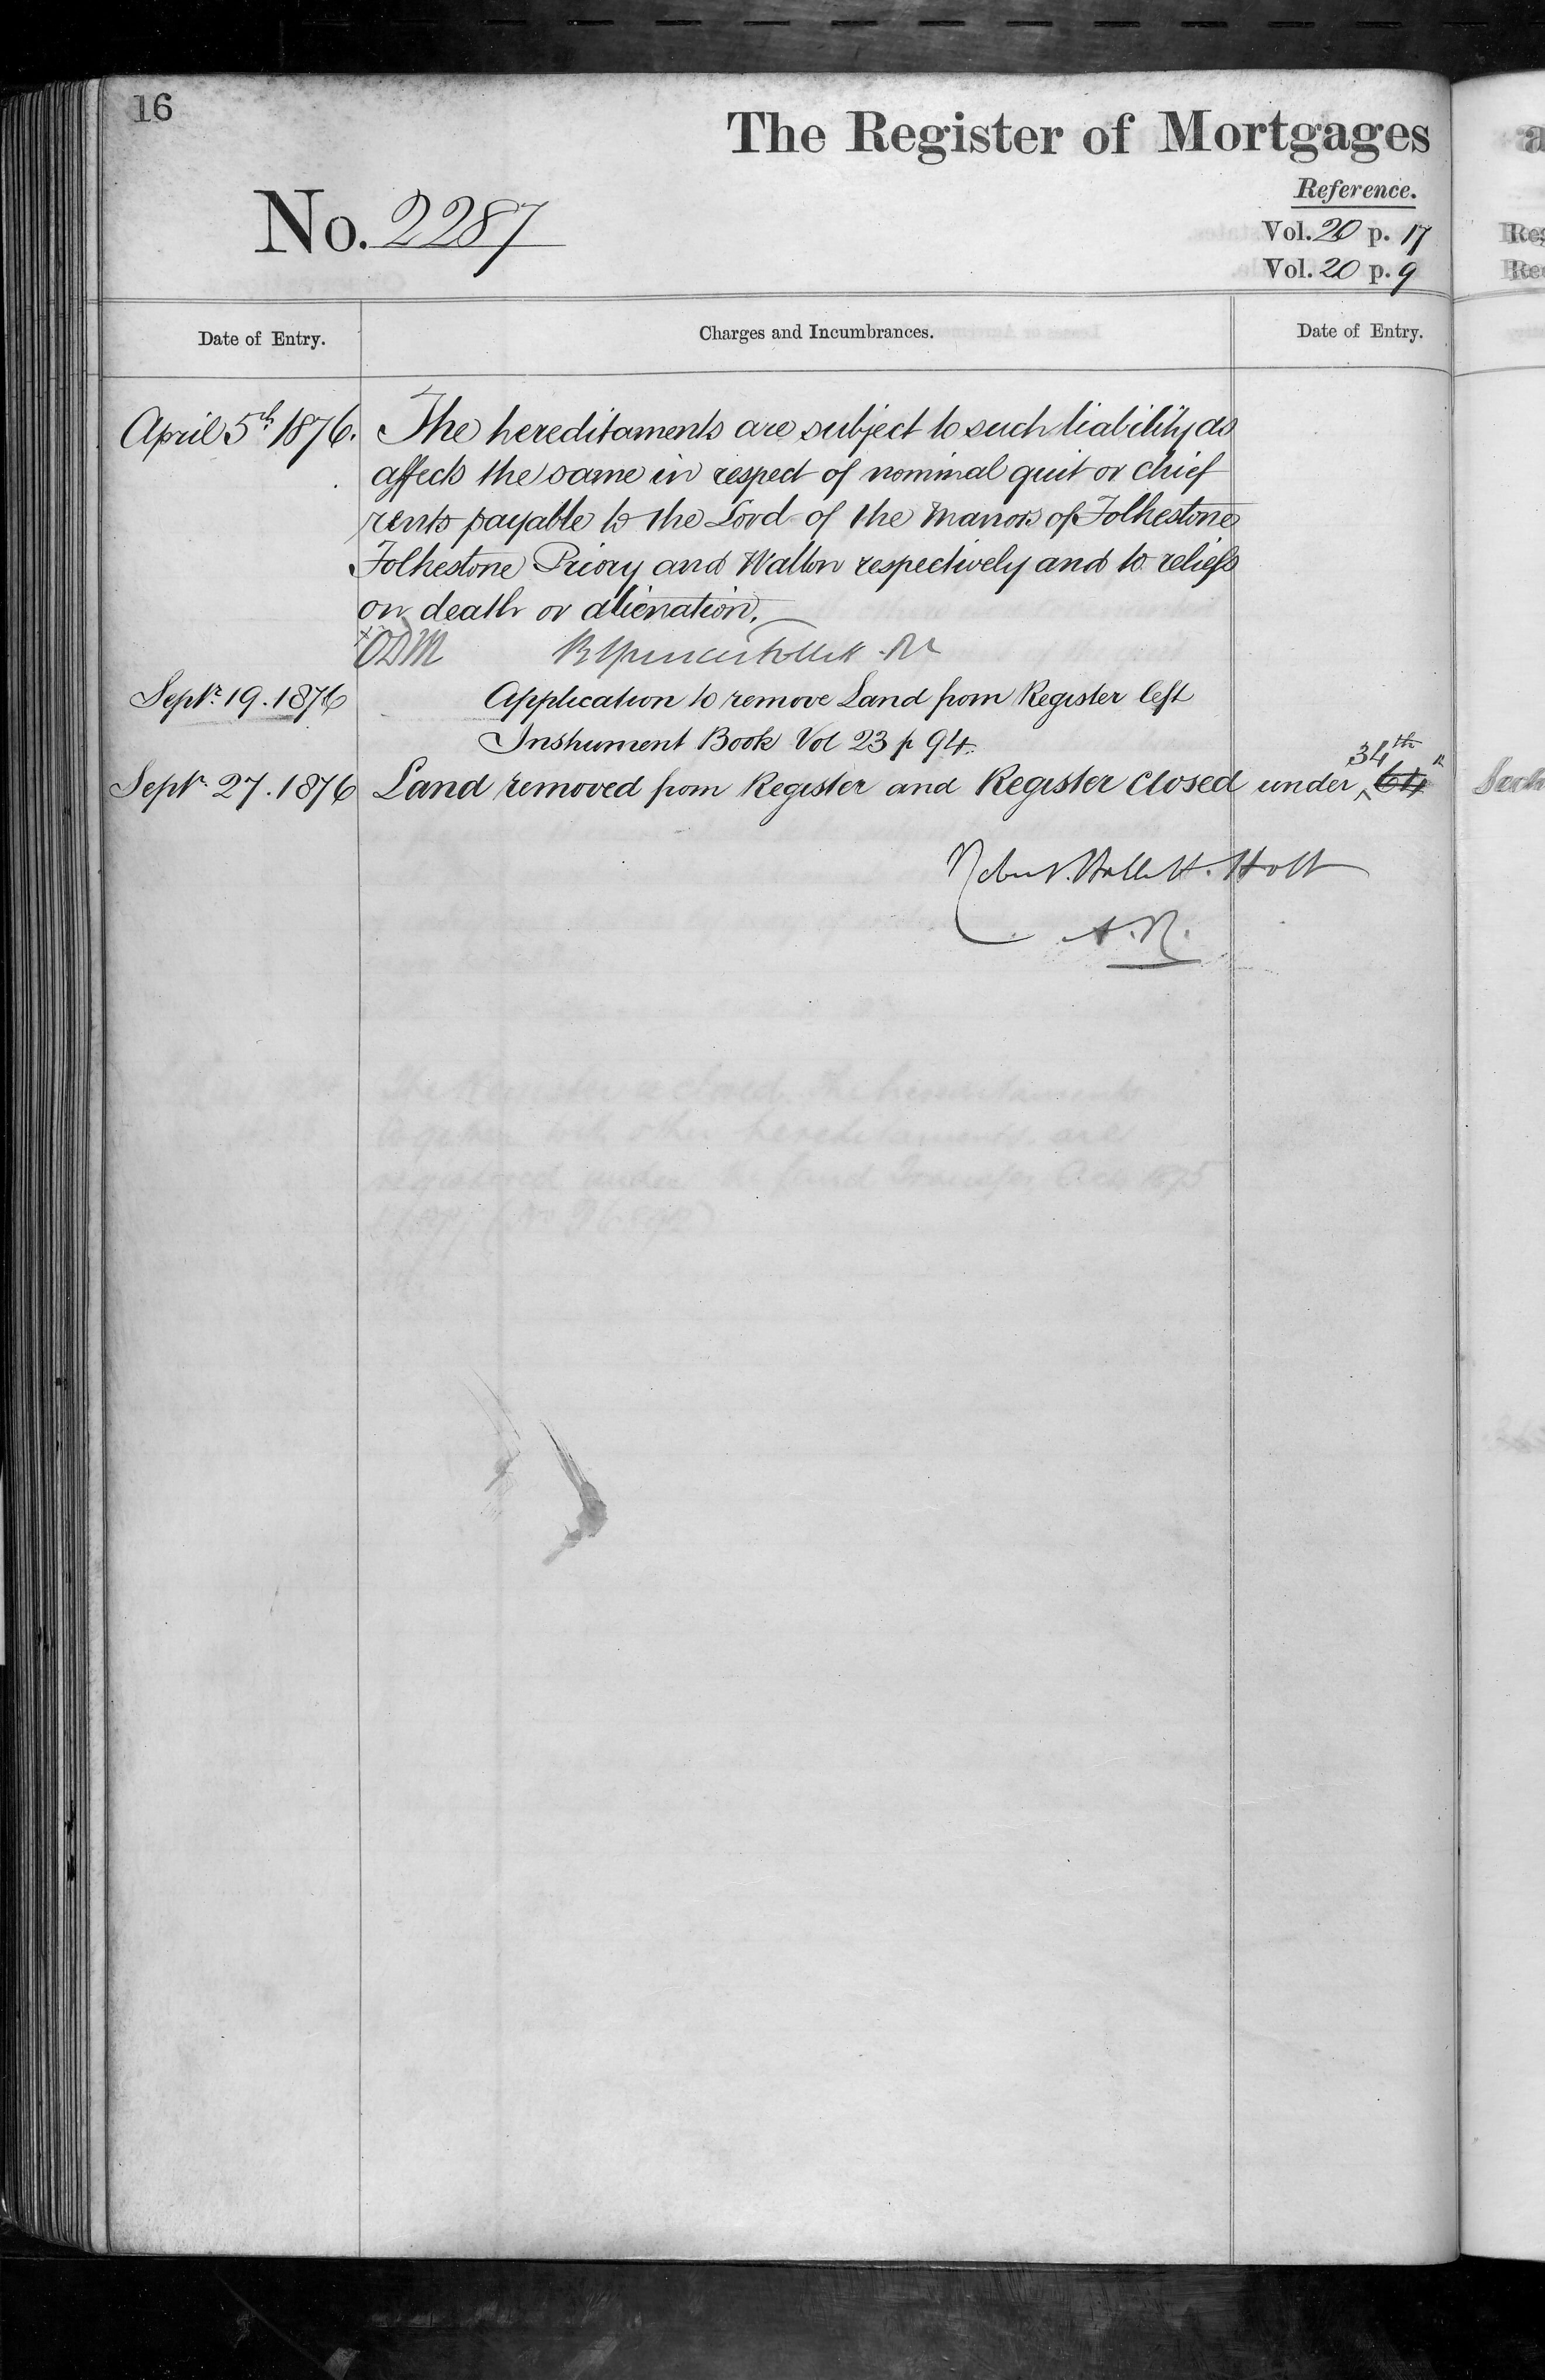 16
The Register of Mortgages
Reference.
No. 2287
Vol. 20 p. 17
Vol. 20 p. 9
Date of Entry.
Charges and Incumbrances.
Date of Entry.
April 5th 1876. The hereditaments are subject to such liability as
affects the same in respect of nominal quit or chief
rents payable to the Lord of the Manors of Folkestone
Folkestone Priory and Walton respectively and to reliefs
on death or alienation.
ODM
Septr. 19. 1876 Application to remove Land from Register left
Instrument Book Vol 23 p 94.
34th
Septr. 27. 1876 Land removed from Register and Register closed under 64
Robert Hallett Holt
A.R.